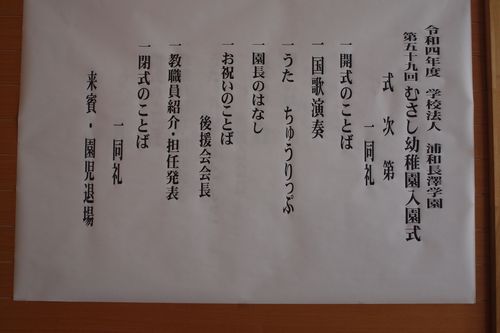 令和四年度　学校法人　浦和長澤学園
第五十九回 むさし幼稚園入園式
式　次　第
一同礼
一開式のことば
一国歌演奏
一うた　ちゅうりっぷ
一園長のはなし
一お祝いのことば
後援会会長
一教職員紹介・担任発表
一閉式のことば
一同礼
来賓・園児退場